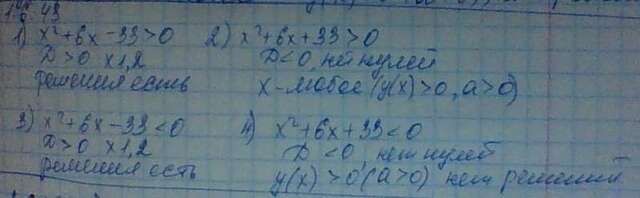 1) x²+6x-33>0
D>0 x1,2
решения есть
2) x²+6x+33>0
D<0, нет нулей
x-любое (y(x)>0, a>0)
3) x²+6x-33<0
D>0 x1,2
решения есть
4) x²+6x+33<0
D<0, нет нулей
y(x)>0 (a>0) нет решений